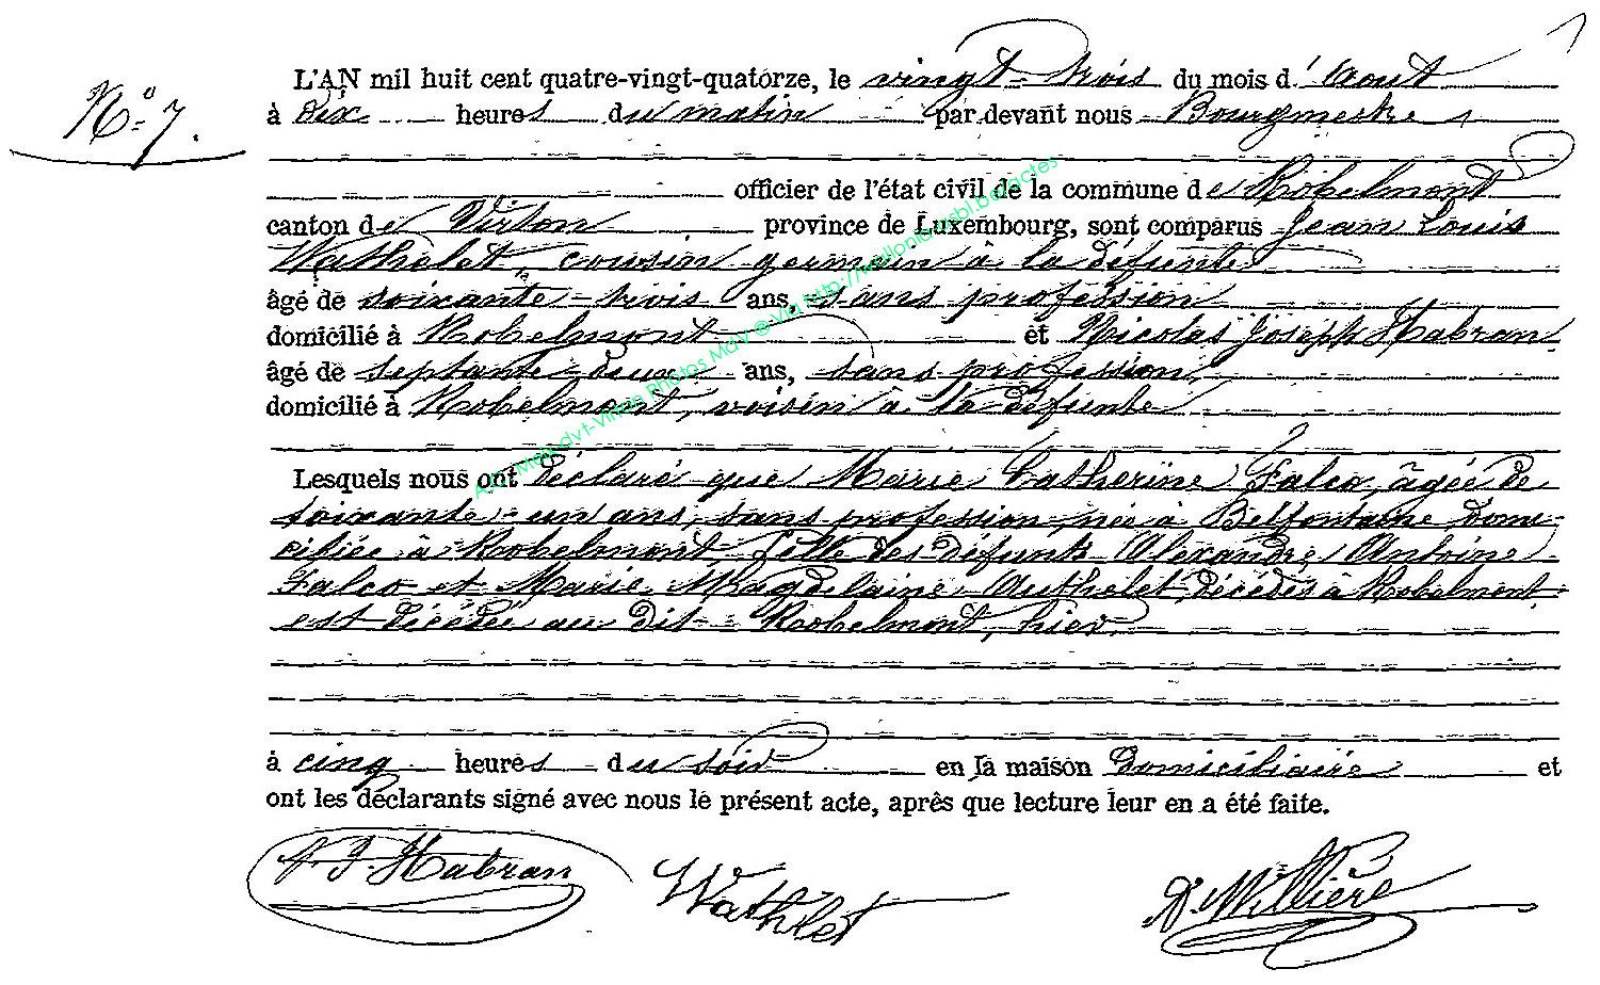 N° 7.
L'AN mil huit cent quatre-vingt-quatorze, le vingt-trois du mois d'Aout
à Dix heures du matin par devant nous Bourgmestre
officier de l'état civil de la commune de Robelmont
canton de Virton province de Luxembourg, sont comparus Jean Louis
Wathelet, cousin germain à la défunte
âgé de soixante-trois ans, sans profession
domicilié à Robelmont et Nicolas Joseph Habran
âgé de septante-deux ans, sans profession,
domicilié à Robelmont, voisin à la défunte
Lesquels nous ont déclaré que Marie Catherine Falco, âgée de
soixante-un ans, sans profession, née à Belfontaine, domi-
ciliée à Robelmont, fille des défunts Alexandre Antoine
Falco et Marie Magdelaine Authelet, décédés à Robelmont
est décédée au dit Robelmont, hier
à cinq heures du soir en la maison Domiciliaire et
ont les déclarants signé avec nous le présent acte, après que lecture leur en a été faite.
J. Habran Wathlet D. Willière
A.E. Meix-dvt-Virton Photos MdV © Via http://wallonia-asbl.be/actes